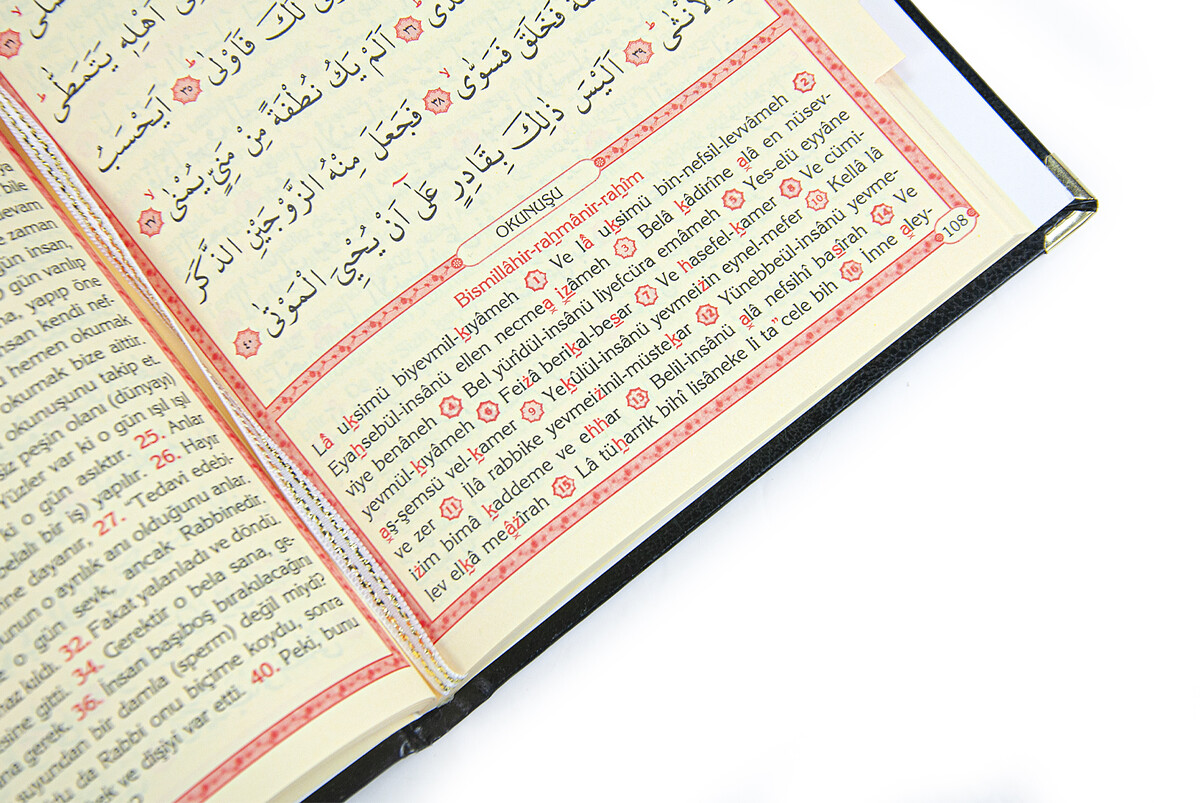 bile
zaman
gün insan,
o gün varılıp
yapıp öne
kendi nef-
hemen okumak
okumak bize aittir.
okunuşunu takip et.
peşin olanı (dünyayı)
Yüzler var ki o gün ışıl ışıl
ki o gün asıktır. 25. Anlar
belalı bir iş) yapılır. 26. Hayır
dayanır, 27. "Tedavi edebi-
o ayrılık anı olduğunu anlar.
o gün sevk, ancak Rabbinedir.
kıldı. 32. Fakat yalanladı ve döndü.
gitti. 34. Gerektir o bela sana, ge-
gerek. 36. İnsan başıboş bırakılacağını
suyundan bir damla (sperm) değil miydi?
da Rabbi onu biçime koydu, sonra
ve dişiyi var etti. 40. Peki, bunu
اَهْلِه۪ يَتَمَطّٰى
لَكَ فَاَوْلٰى ﴿٣٥﴾ اَيَحْسَبُ
﴿٣٦﴾ اَلَمْ يَكُ نُطْفَةً مِنْ مَنِيٍّ يُمْنٰى ﴿٣٧﴾
فَخَلَقَ فَسَوّٰى ﴿٣٨﴾ فَجَعَلَ مِنْهُ الزَّوْجَيْنِ الذَّكَرَ
وَالْاُنْثٰى ﴿٣٩﴾ اَلَيْسَ ذٰلِكَ بِقَادِرٍ عَلٰٓى اَنْ يُحْيِيَ الْمَوْتٰى ﴿٤٠﴾
OKUNUŞU
Bismillâhir-raḥmânir-raḥîm
Lâ uksimü biyevmil-kıyâmeh 1 Ve lâ uksimü bin-nefsil-levvâmeh 2
Eyahsebül-insânü ellen necmea izâmeh 3 Belâ kâdirîne alâ en nüsev-
viye benâneh 4 Bel yürîdül-insânü liyefcüra emâmeh 5 Yes-elü eyyâne
yevmül-kıyâmeh 6 Feiżâ berikal-besar 7 Ve hasefel-kamer 8 Ve cümi-
aş-şemsü vel-kamer 9 Yekûlül-insânü yevmeiżin eynel-mefer 10 Kellâ lâ
ve zer 11 İlâ rabbike yevmeiżinil-müstekar 12 Yünebbeül-insânü yevme-
iżim bimâ kaddeme ve ehhar 13 Belil-insânü alâ nefsihî basîrah 14 Ve
lev elkâ meâżîrah 15 Lâ tüharrik bihî lisâneke li ta"cele bih 16 İnne aley-
108